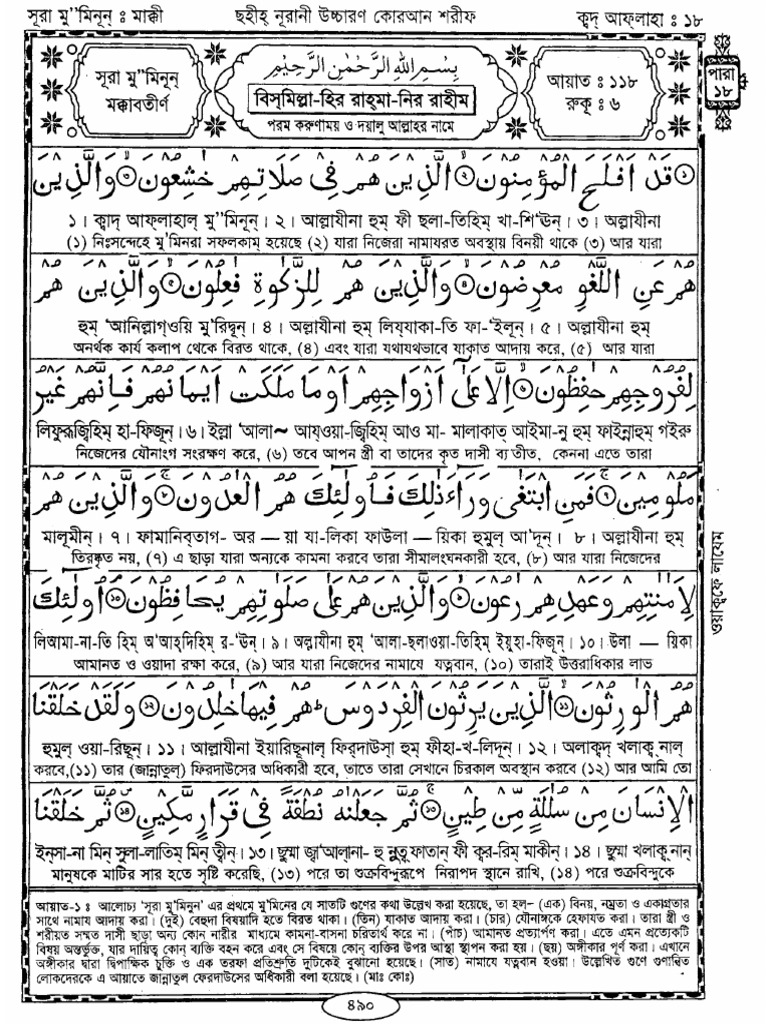 সূরা মু"মিনূন্ : মাক্কী
ছহীহ্ নূরানী উচ্চারণ কোরআন শরীফ
ক্বদ্ আফ্লাহা : ১৮
সূরা মু"মিনূন্
মক্কাবতীর্ণ
بِسْمِ اللّٰهِ الرَّحْمٰنِ الرَّحِيْمِ
বিস্মিল্লা-হির রাহ্মা-নির রাহীম
পরম করুণাময় ও দয়ালু আল্লাহর নামে
আয়াত : ১১৮
রুকূ : ৬
পারা
১৮
۞ قَدْ اَفْلَحَ الْمُؤْمِنُوْنَ ۞ الَّذِيْنَ هُمْ فِيْ صَلَاتِهِمْ خٰشِعُوْنَ ۞ وَالَّذِيْنَ
১। ক্বাদ্ আফ্লাহাল্ মু"মিনূন্। ২। আল্লাযীনা হুম্ ফী ছলা-তিহিম্ খা-শি'ঊন্। ৩। অল্লাযীনা
(১) নিঃসন্দেহে মু'মিনরা সফলকাম্ হয়েছে (২) যারা নিজেরা নামাযরত অবস্থায় বিনয়ী থাকে (৩) আর যারা
هُمْ عَنِ اللَّغْوِ مُعْرِضُوْنَ ۞ وَالَّذِيْنَ هُمْ لِلزَّكٰوةِ فٰعِلُوْنَ ۞ وَالَّذِيْنَ هُمْ
হুম্ 'আনিল্লাগ্ওয়ি মু'রিদ্বূন্। ৪। অল্লাযীনা হুম্ লিয্যাকা-তি ফা-'ইলূন্। ৫। অল্লাযীনা হুম্
অনর্থক কার্য কলাপ থেকে বিরত থাকে, (৪) এবং যারা যথাযথভাবে যাকাত আদায় করে, (৫) আর যারা
لِفُرُوْجِهِمْ حٰفِظُوْنَ ۞ اِلَّا عَلٰٓى اَزْوَاجِهِمْ اَوْ مَا مَلَكَتْ اَيْمَانُهُمْ فَاِنَّهُمْ غَيْرُ
লিফুরূজ্বিহিম্ হা-ফিজূন্। ৬। ইল্লা 'আলা~ আয্ওয়া-জ্বিহিম্ আও মা- মালাকাত্ আইমা-নু হুম্ ফাইন্নাহুম্ গইরু
নিজেদের যৌনাংগ সংরক্ষণ করে, (৬) তবে আপন স্ত্রী বা তাদের কৃত দাসী ব্যতীত, কেননা এতে তারা
مَلُوْمِيْنَ ۞ فَمَنِ ابْتَغٰى وَرَآءَ ذٰلِكَ فَاُولٰٓئِكَ هُمُ الْعٰدُوْنَ ۞ وَالَّذِيْنَ هُمْ
মালূমীন্। ৭। ফামানিব্তাগ- অর — য়া যা-লিকা ফাউলা — য়িকা হুমুল্ আ'দূন্। ৮। অল্লাযীনা হুম্
তিরস্কৃত নয়, (৭) এ ছাড়া যারা অন্যকে কামনা করবে তারা সীমালংঘনকারী হবে, (৮) আর যারা নিজেদের
ওয়াক্বফে লাযেম
لِاَمٰنٰتِهِمْ وَعَهْدِهِمْ رٰعُوْنَ ۞ وَالَّذِيْنَ هُمْ عَلٰى صَلَوٰتِهِمْ يُحَافِظُوْنَ ۞ اُولٰٓئِكَ
লিআমা-না-তি হিম্ অ'আহ্দিহিম্ র-'ঊন্। ৯। অল্লাযীনা হুম্ 'আলা-ছলাওয়া-তিহিম্ ইয়ুহা-ফিজূন্। ১০। উলা — য়িকা
আমানত ও ওয়াদা রক্ষা করে, (৯) আর যারা নিজেদের নামাযে যত্নবান, (১০) তারাই উত্তরাধিকার লাভ
هُمُ الْوٰرِثُوْنَ ۞ الَّذِيْنَ يَرِثُوْنَ الْفِرْدَوْسَ ؕ هُمْ فِيْهَا خٰلِدُوْنَ ۞ وَلَقَدْ خَلَقْنَا
হুমুল্ ওয়া-রিছূন্। ১১। আল্লাযীনা ইয়ারিছূনাল্ ফির্দাউসা্ হুম্ ফীহা-খ-লিদূন্। ১২। অলাক্বদ্ খলাক্ব্ নাল্
করবে,(১১) তার (জান্নাতুল) ফিরদাউসের অধিকারী হবে, তাতে তারা সেখানে চিরকাল অবস্থান করবে (১২) আর আমি তো
الْاِنْسَانَ مِنْ سُلٰلَةٍ مِّنْ طِيْنٍ ۞ ثُمَّ جَعَلْنٰهُ نُطْفَةً فِيْ قَرَارٍ مَّكِيْنٍ ۞ ثُمَّ خَلَقْنَا
ইন্সা-না মিন্ সুলা-লাতিম্ মিন্ ত্বীন্। ১৩। ছুম্মা জ্বা'আল্না- হু নুত্ব্ ফাতান্ ফী ক্বর-রিম্ মাকীন্। ১৪। ছুম্মা খলাক্ব্ নান্
মানুষকে মাটির সার হতে সৃষ্টি করেছি, (১৩) পরে তা শুক্রবিন্দুরূপে নিরাপদ স্থানে রাখি, (১৪) পরে শুক্রবিন্দুকে
আয়াত-১ : আলোচ্য 'সূরা মু'মিনুন' এর প্রথমে মু'মিনের যে সাতটি গুণের কথা উল্লেখ করা হয়েছে, তা হল– (এক) বিনয়, নম্রতা ও একাগ্রতার
সাথে নামায আদায় করা। (দুই) বেহুদা বিষয়াদি হতে বিরত থাকা। (তিন) যাকাত আদায় করা। (চার) যৌনাঙ্গকে হেফাযত করা। তারা স্ত্রী ও
শরীয়ত সম্মত দাসী ছাড়া অন্য কোন নারীর মাধ্যমে কামনা-বাসনা চরিতার্থ করে না। (পাঁচ) আমানত প্রত্যার্পণ করা। এতে এমন প্রত্যেকটি
বিষয় অন্তর্ভুক্ত, যার দায়িত্ব কোন ব্যক্তি বহন করে এবং সে বিষয়ে কোন ব্যক্তির উপর আস্থা স্থাপন করা হয়। (ছয়) অঙ্গীকার পূর্ণ করা। এখানে
অঙ্গীকার দ্বারা দ্বিপাক্ষিক চুক্তি ও এক তরফা প্রতিশ্রুতি দুটিকেই বুঝানো হয়েছে। (সাত) নামাযে যত্নবান হওয়া। উল্লেখিত গুণে গুণান্বিত
লোকদেরকে এ আয়াতে জান্নাতুল ফেরদাউসের অধিকারী বলা হয়েছে। (মাঃ কোঃ)
৪৯০